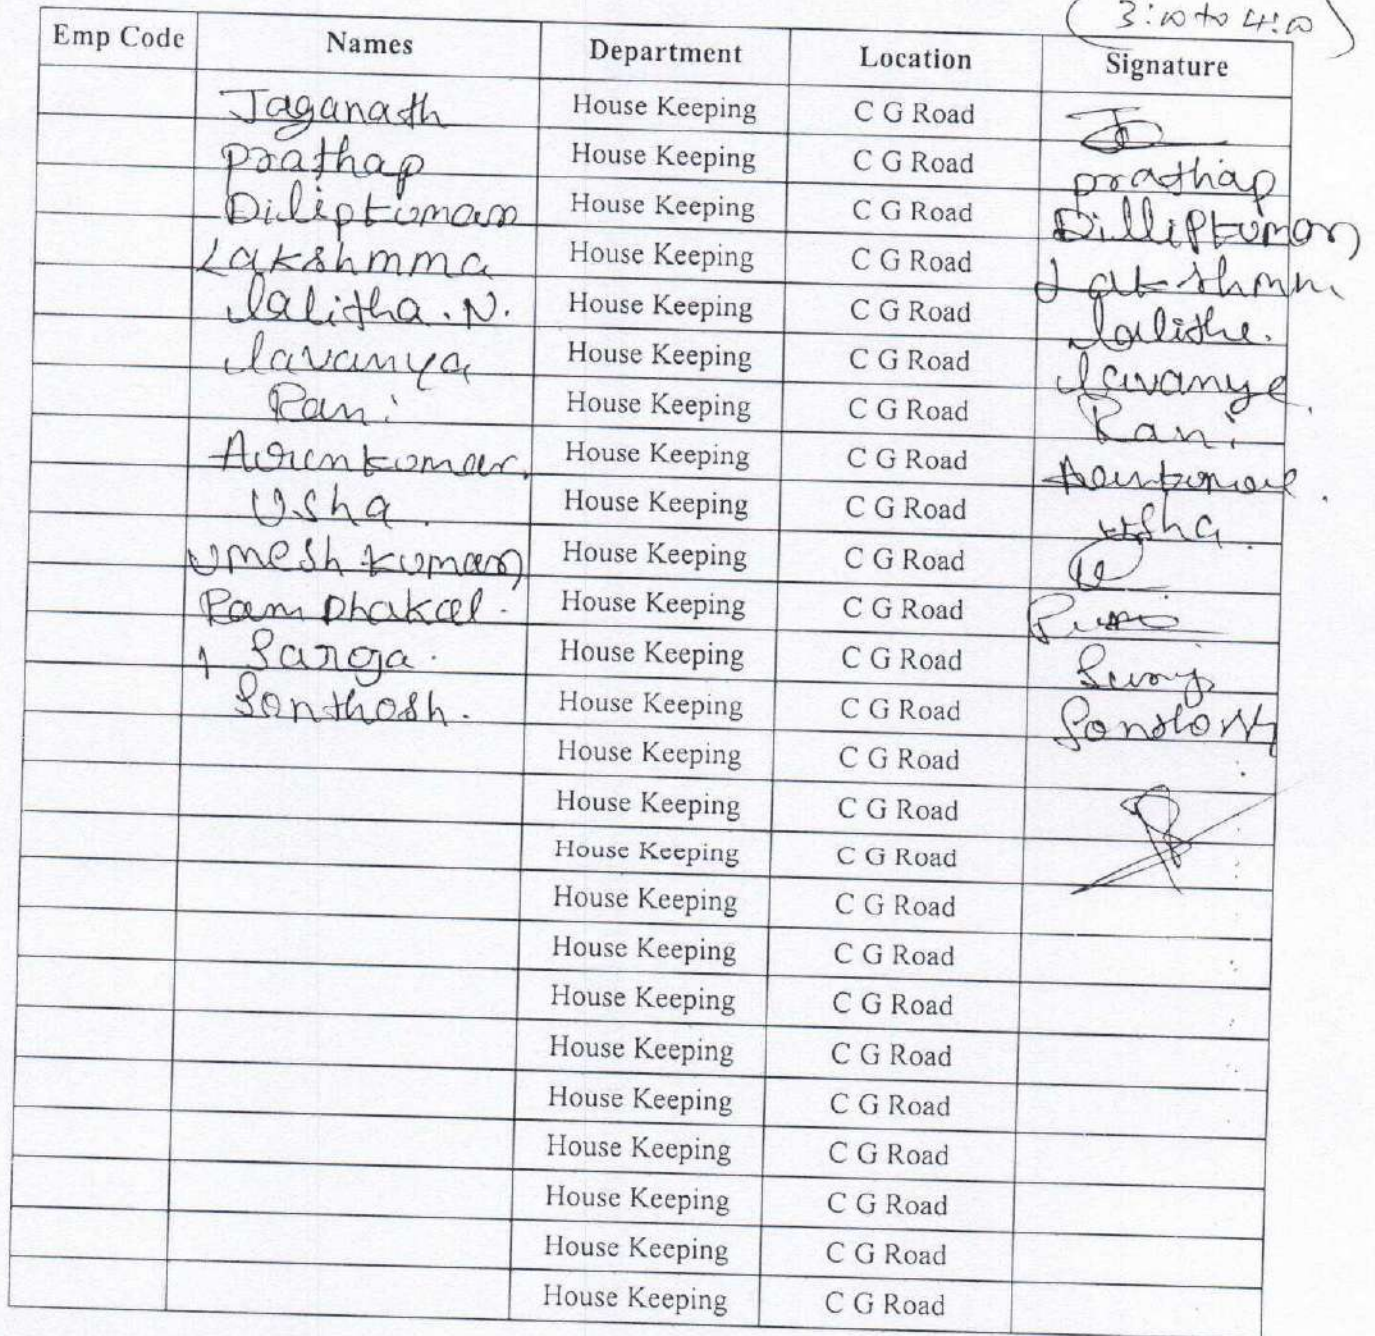 3:00 to 4:00
Emp Code Names Department Location Signature
Jaganath House Keeping C G Road
prathap House Keeping C G Road prathap
Dilipkumar House Keeping C G Road Dillipkumar
Lakshmma House Keeping C G Road
Lalitha. N. House Keeping C G Road Lalitha.
Lavanya House Keeping C G Road Lavanya.
Rani House Keeping C G Road Rani
Arunkumar. House Keeping C G Road
Usha. House Keeping C G Road Usha.
Umesh kumar House Keeping C G Road
Ram Dhakal. House Keeping C G Road
Saroja. House Keeping C G Road
Santhosh. House Keeping C G Road Santosh
House Keeping C G Road
House Keeping C G Road
House Keeping C G Road
House Keeping C G Road
House Keeping C G Road
House Keeping C G Road
House Keeping C G Road
House Keeping C G Road
House Keeping C G Road
House Keeping C G Road
House Keeping C G Road
House Keeping C G Road